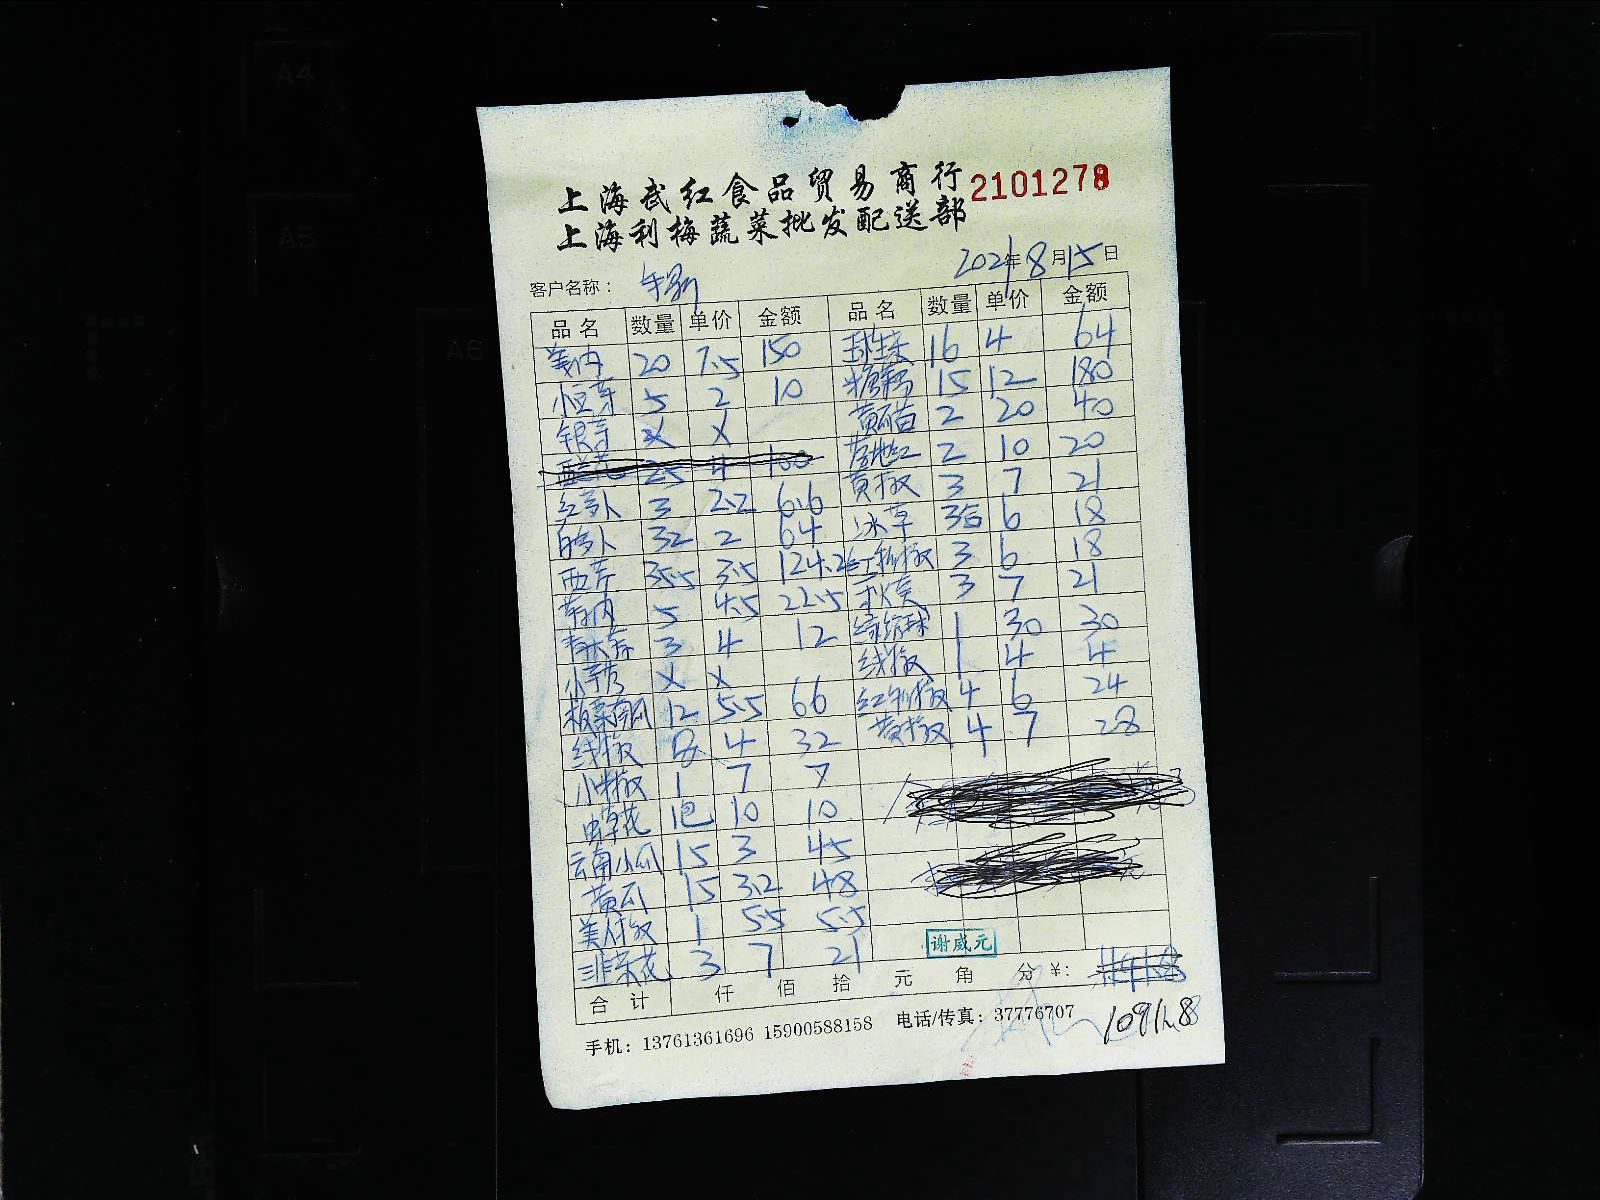 A4
A5
A6
上海武红食品贸易商行 2101278
上海利梅蔬菜批发配送部
客户名称: 2021年8月15日
品名 数量 单价 金额 品名 数量 单价 金额
20 7.5 150 球生菜 16 4 64
小豆芽 5 2 10 15 12 180
银芽 X X 黄苗 2 20 40
西兰花 25 4 100 落地红 2 10 20
红萝卜 3 2.2 6.6 黄椒 3 7 21
白萝卜 32 2 64 冰草 3 6 18
西芹 35.5 3.5 124.2 红椒 3 6 18
5 4.5 22.5 秋葵 3 7 21
3 4 12 1 30 30
小芋艿 X X 线椒 1 4 4
板栗南瓜 12 5.5 66 红椒 4 6 24
线椒 8 4 32 黄椒 4 7 28
小米椒 1 7 7
虫草花 1包 10 10
云南小瓜 15 3 45
黄瓜 15 3.2 48
美人椒 1 5.5 5.5
韭菜花 3 7 21
谢威元
合计 仟 佰 拾 元 角 分 ¥:
1091.8
手机: 13761361696 15900588158 电话/传真: 37776707